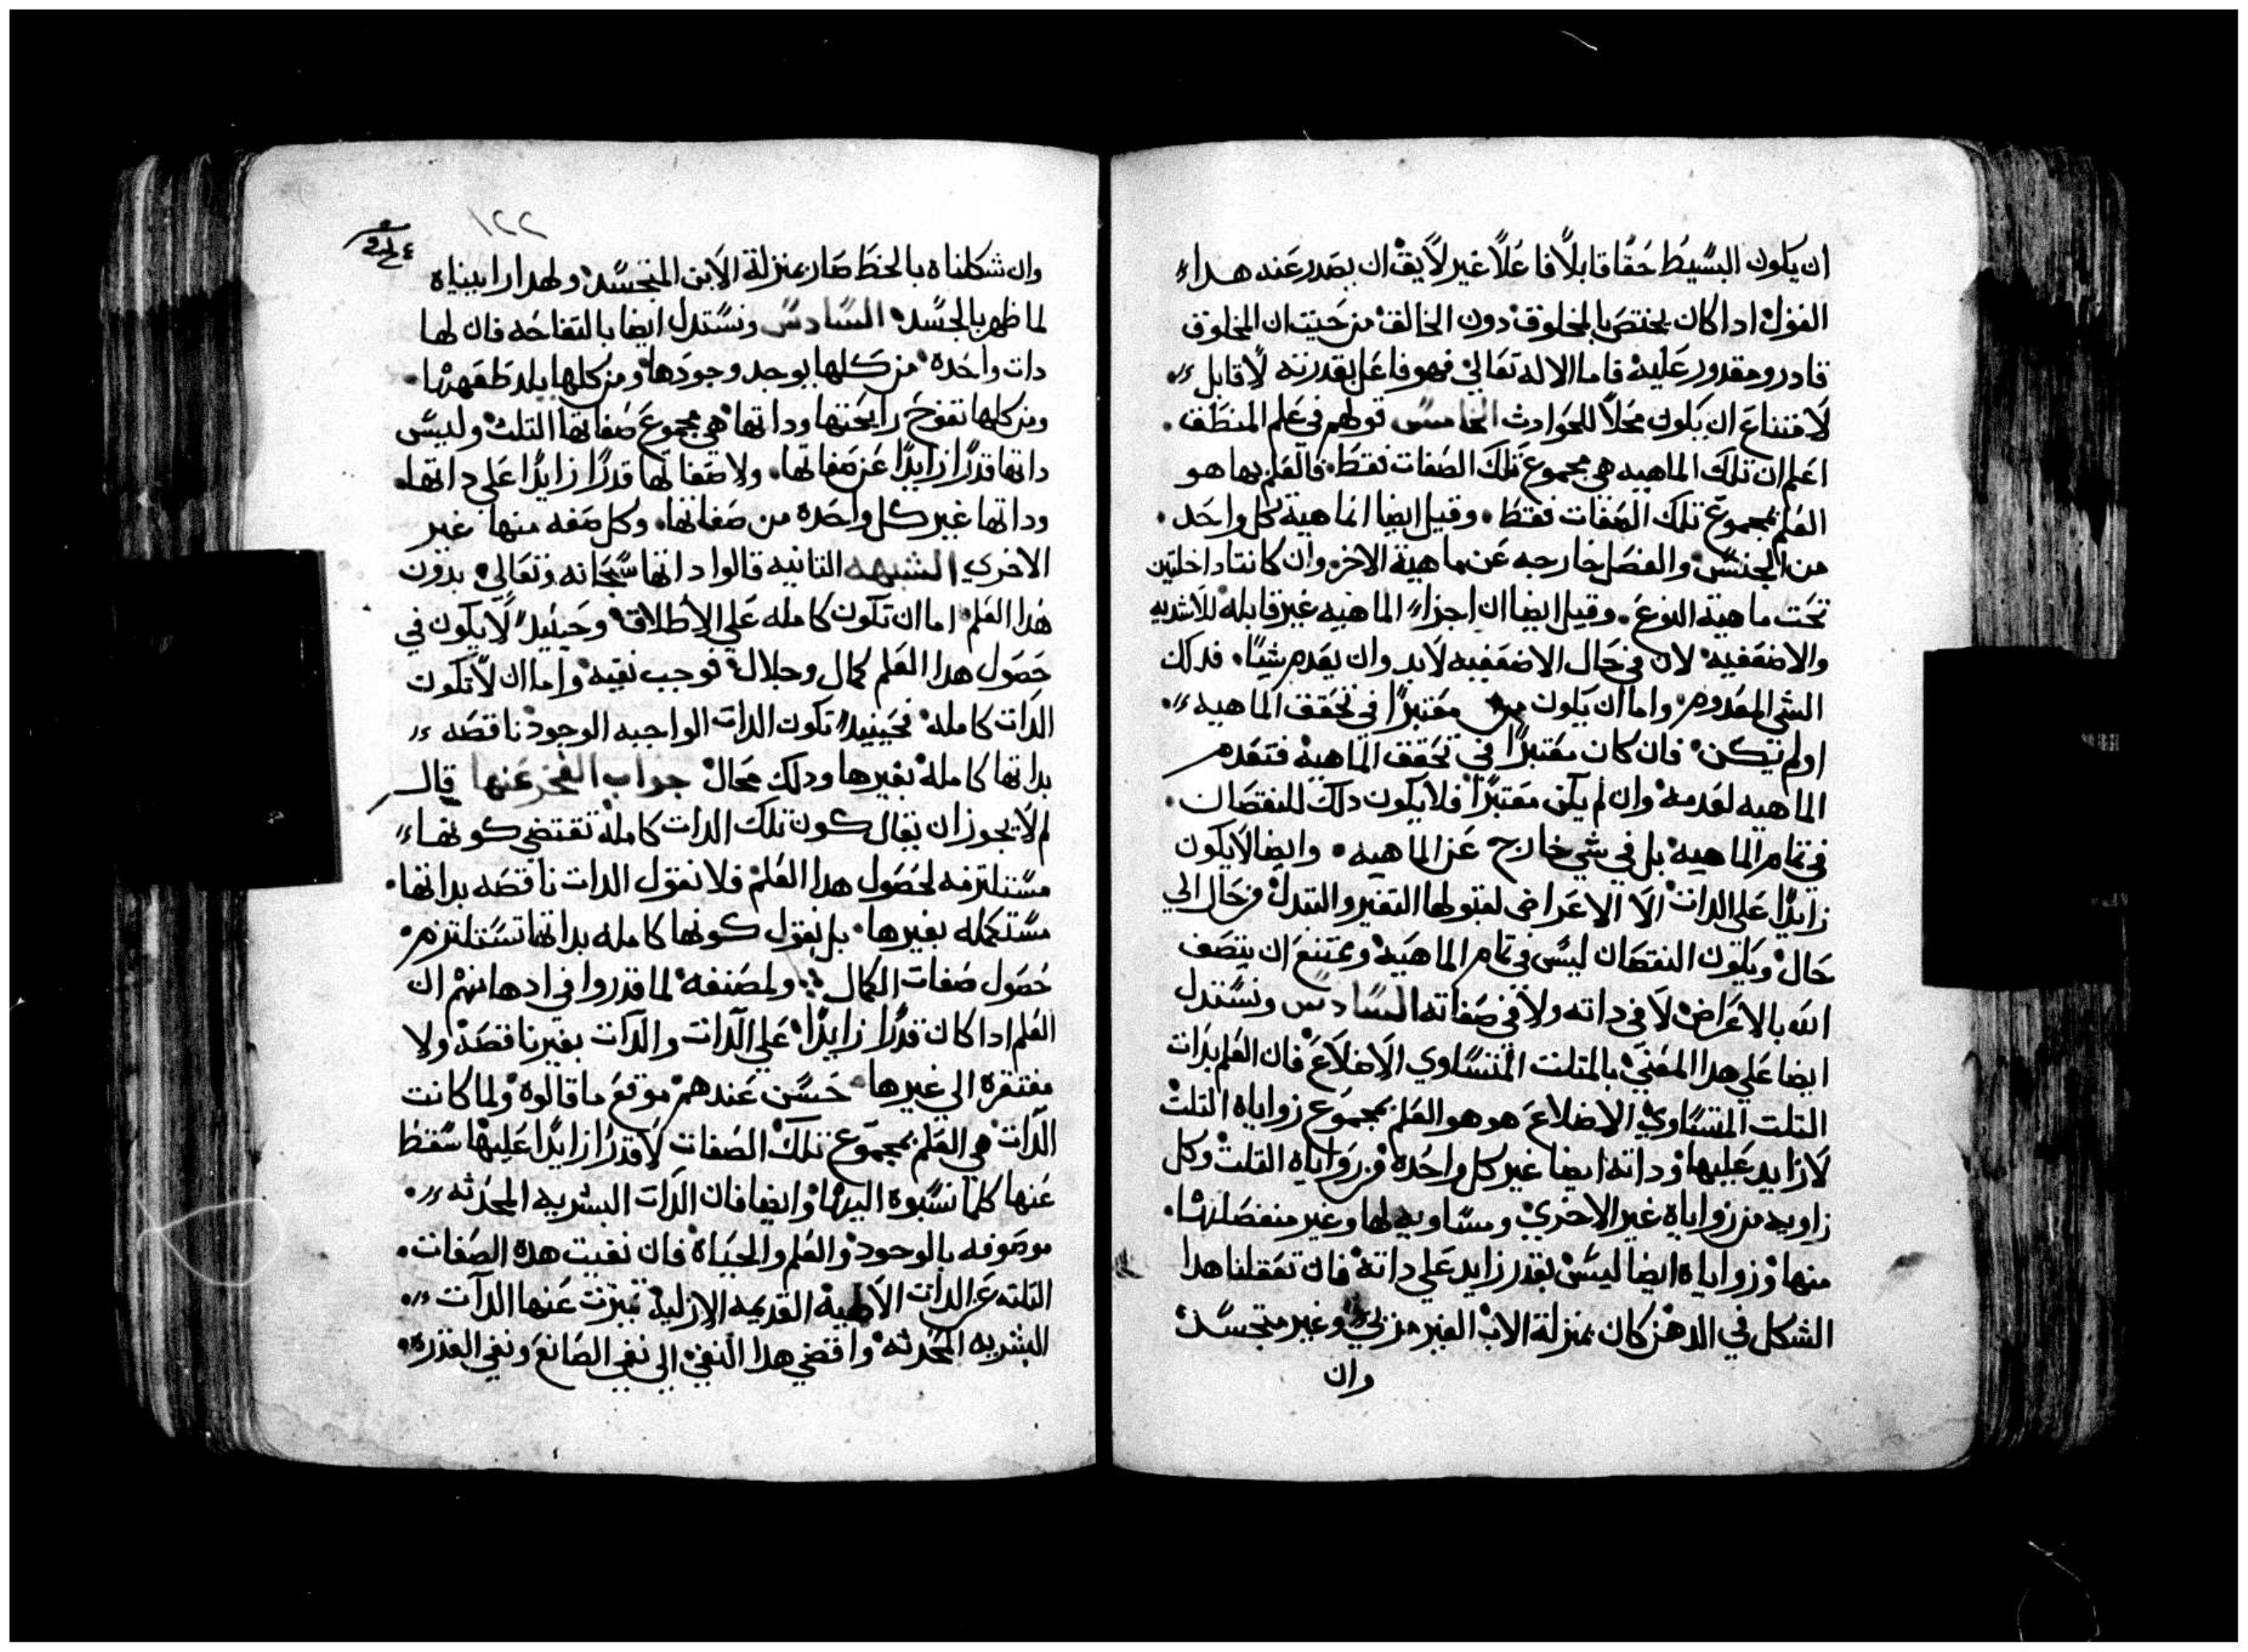 ان يكون البسيط حقا قابلاً فاعلاً غير لايق ان يصدر عنه هدا
القول ادا كان يختص بالمخلوق دون الخالق من حيت ان المخلوق
قادر ومقدور عليه فاما الاله تعالي فهو فاعل بقدرته لا قابل
لامتناع ان يكون محلاً للحوادث الخامس قولهم في علم المنطق
اعلم ان تلك الماهيه هي مجموع تلك الصفات فقط فالعلم بها هو
العلم بمجموع تلك الصفات فقط وقيل ايضا ان ماهية كل واحد
من الجنس والفصل خارجه عن ماهية الاخر وان كانتا داخلتين
تحت ماهية النوع وقيل ايضا ان اجزاء الماهيه غير قابله للاشديه
والاضعفيه لان في حال الاضعفيه لا بد وان يعدم شيا فدلك
الشي المعدوم واما ان يكون معتبرًا في تحقق الماهيه
او لم يكن فان كان معتبرًا في تحقق الماهيه فتعدم
الماهيه لعدمه وان لم يكن معتبرًا فلا يكون دلك للنقصان
في تمام الماهيه بل في شي خارج عن الماهيه وايضا لا يكون
زايدًا علي الدات الا الاعراض لقبولها التغير والتبدل من حال الي
حال ويكون النقصان ليس في تمام الماهيه ويمتنع ان يتصف
الله بالاعراض لا في داته ولا في صفاته السادس ونستدل
ايضا علي هدا المعني بالمتلت المتساوي الاضلاع فان العلم بدات
التلت المتساوي الاضلاع هو هو العلم بمجموع زواياه التلت
لا زايد عليها وداته ايضا غير كل واحده من زواياه التلت وكل
زاويه من زواياه غير الاخري ومساويه لها وغير منفصله
منها وزواياه ايضا ليس بقدر زايد علي داته فان تعقلنا هدا
الشكل في الدهن كان بمنزلة الاب الغير مري وغير متجسد
وان
١٢٢
وان شكلناه بالخط صار بمنزلة الابن المتجسد ولهدا رايناه
لما ظهر بالجسد السادس ونستدل ايضا بالتفاحه فان لها
دات واحده من كلها يوجد وجودها ومن كلها يلد طعمها
ومن كلها تفوح رايحتها وداتها هي مجموع صفاتها التلت وليس
داتها قدرًا زايدًا عن صفاتها ولا صفاتها قدرًا زايدًا علي داتها
وداتها غير كل واحده من صفاتها وكل صفه منها غير
الاخري الشبهه التانيه قالوا داتها سبحانه وتعالي بدون
هدا العلم اما ان تكون كامله علي الاطلاق وحينيد لا يكون في
حصول هدا العلم كمال وجلال فوجب نفيه واما ان لا تكون
الدات كامله فحينيد تكون الدات الواجبه الوجود ناقصه
بداتها كامله بغيرها ودلك محال جواب الفخر عنها قال
لم لا يجوز ان يقال كون تلك الدات كامله تقتضي كونها
مستلزمه لحصول هدا العلم فلا نقول الدات ناقصه بداتها
مستكمله بغيرها بل نقول كونها كامله بداتها تستلزم
حصول صفات الكمال ولمصنفه لما قدروا في ادهانهم ان
العلم ادا كان قدرًا زايدًا علي الدات والدات بغير ناقصه ولا
مفتقره الي غيرها حسن عندهم موقع ما قالوه ولما كانت
الدات هي العلم بمجموع تلك الصفات لا قدرًا زايدًا عليها سقط
عنها كلما نسبوه اليها وايضا فان الدات البشريه المحدثه
موصوفه بالوجود والعلم والحياه فان نفيت هده الصفات
التلته عن الدات الالهية القديمه الازلية تميزت عنها الدات
البشريه المحدثه واقتضي هدا النفي الي نفي الصانع ونفي القدره